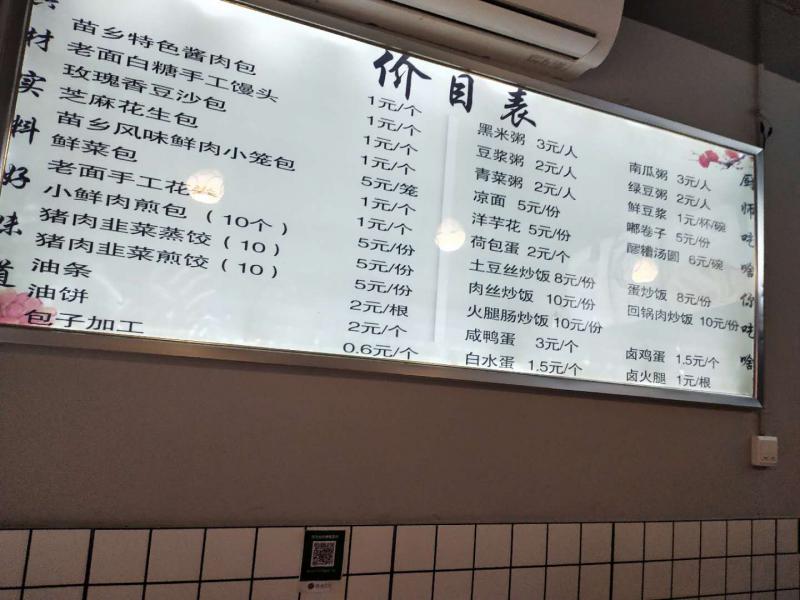 价目表
材实料好味道
苗乡特色酱肉包 1元/个
老面白糖手工馒头 1元/个
玫瑰香豆沙包 1元/个
芝麻花生包 1元/个
苗乡风味鲜肉小笼包 5元/笼
鲜菜包 1元/个
老面手工花 1元/个
小鲜肉煎包（10个） 5元/份
猪肉韭菜蒸饺（10） 5元/份
猪肉韭菜煎饺（10） 5元/份
油条 2元/根
油饼 2元/个
包子加工 0.6元/个
黑米粥 3元/人
豆浆粥 2元/人
青菜粥 2元/人
凉面 5元/份
洋芋花 5元/份
荷包蛋 2元/个
土豆丝炒饭 8元/份
肉丝炒饭 10元/份
火腿肠炒饭 10元/份
咸鸭蛋 3元/个
白水蛋 1.5元/个
南瓜粥 3元/人
绿豆粥 2元/人
鲜豆浆 1元/杯/碗
嘟卷子 5元/份
醪糟汤圆 6元/碗
蛋炒饭 8元/份
回锅肉炒饭 10元/份
卤鸡蛋 1.5元/个
卤火腿 1元/根
厨师吃啥你吃啥